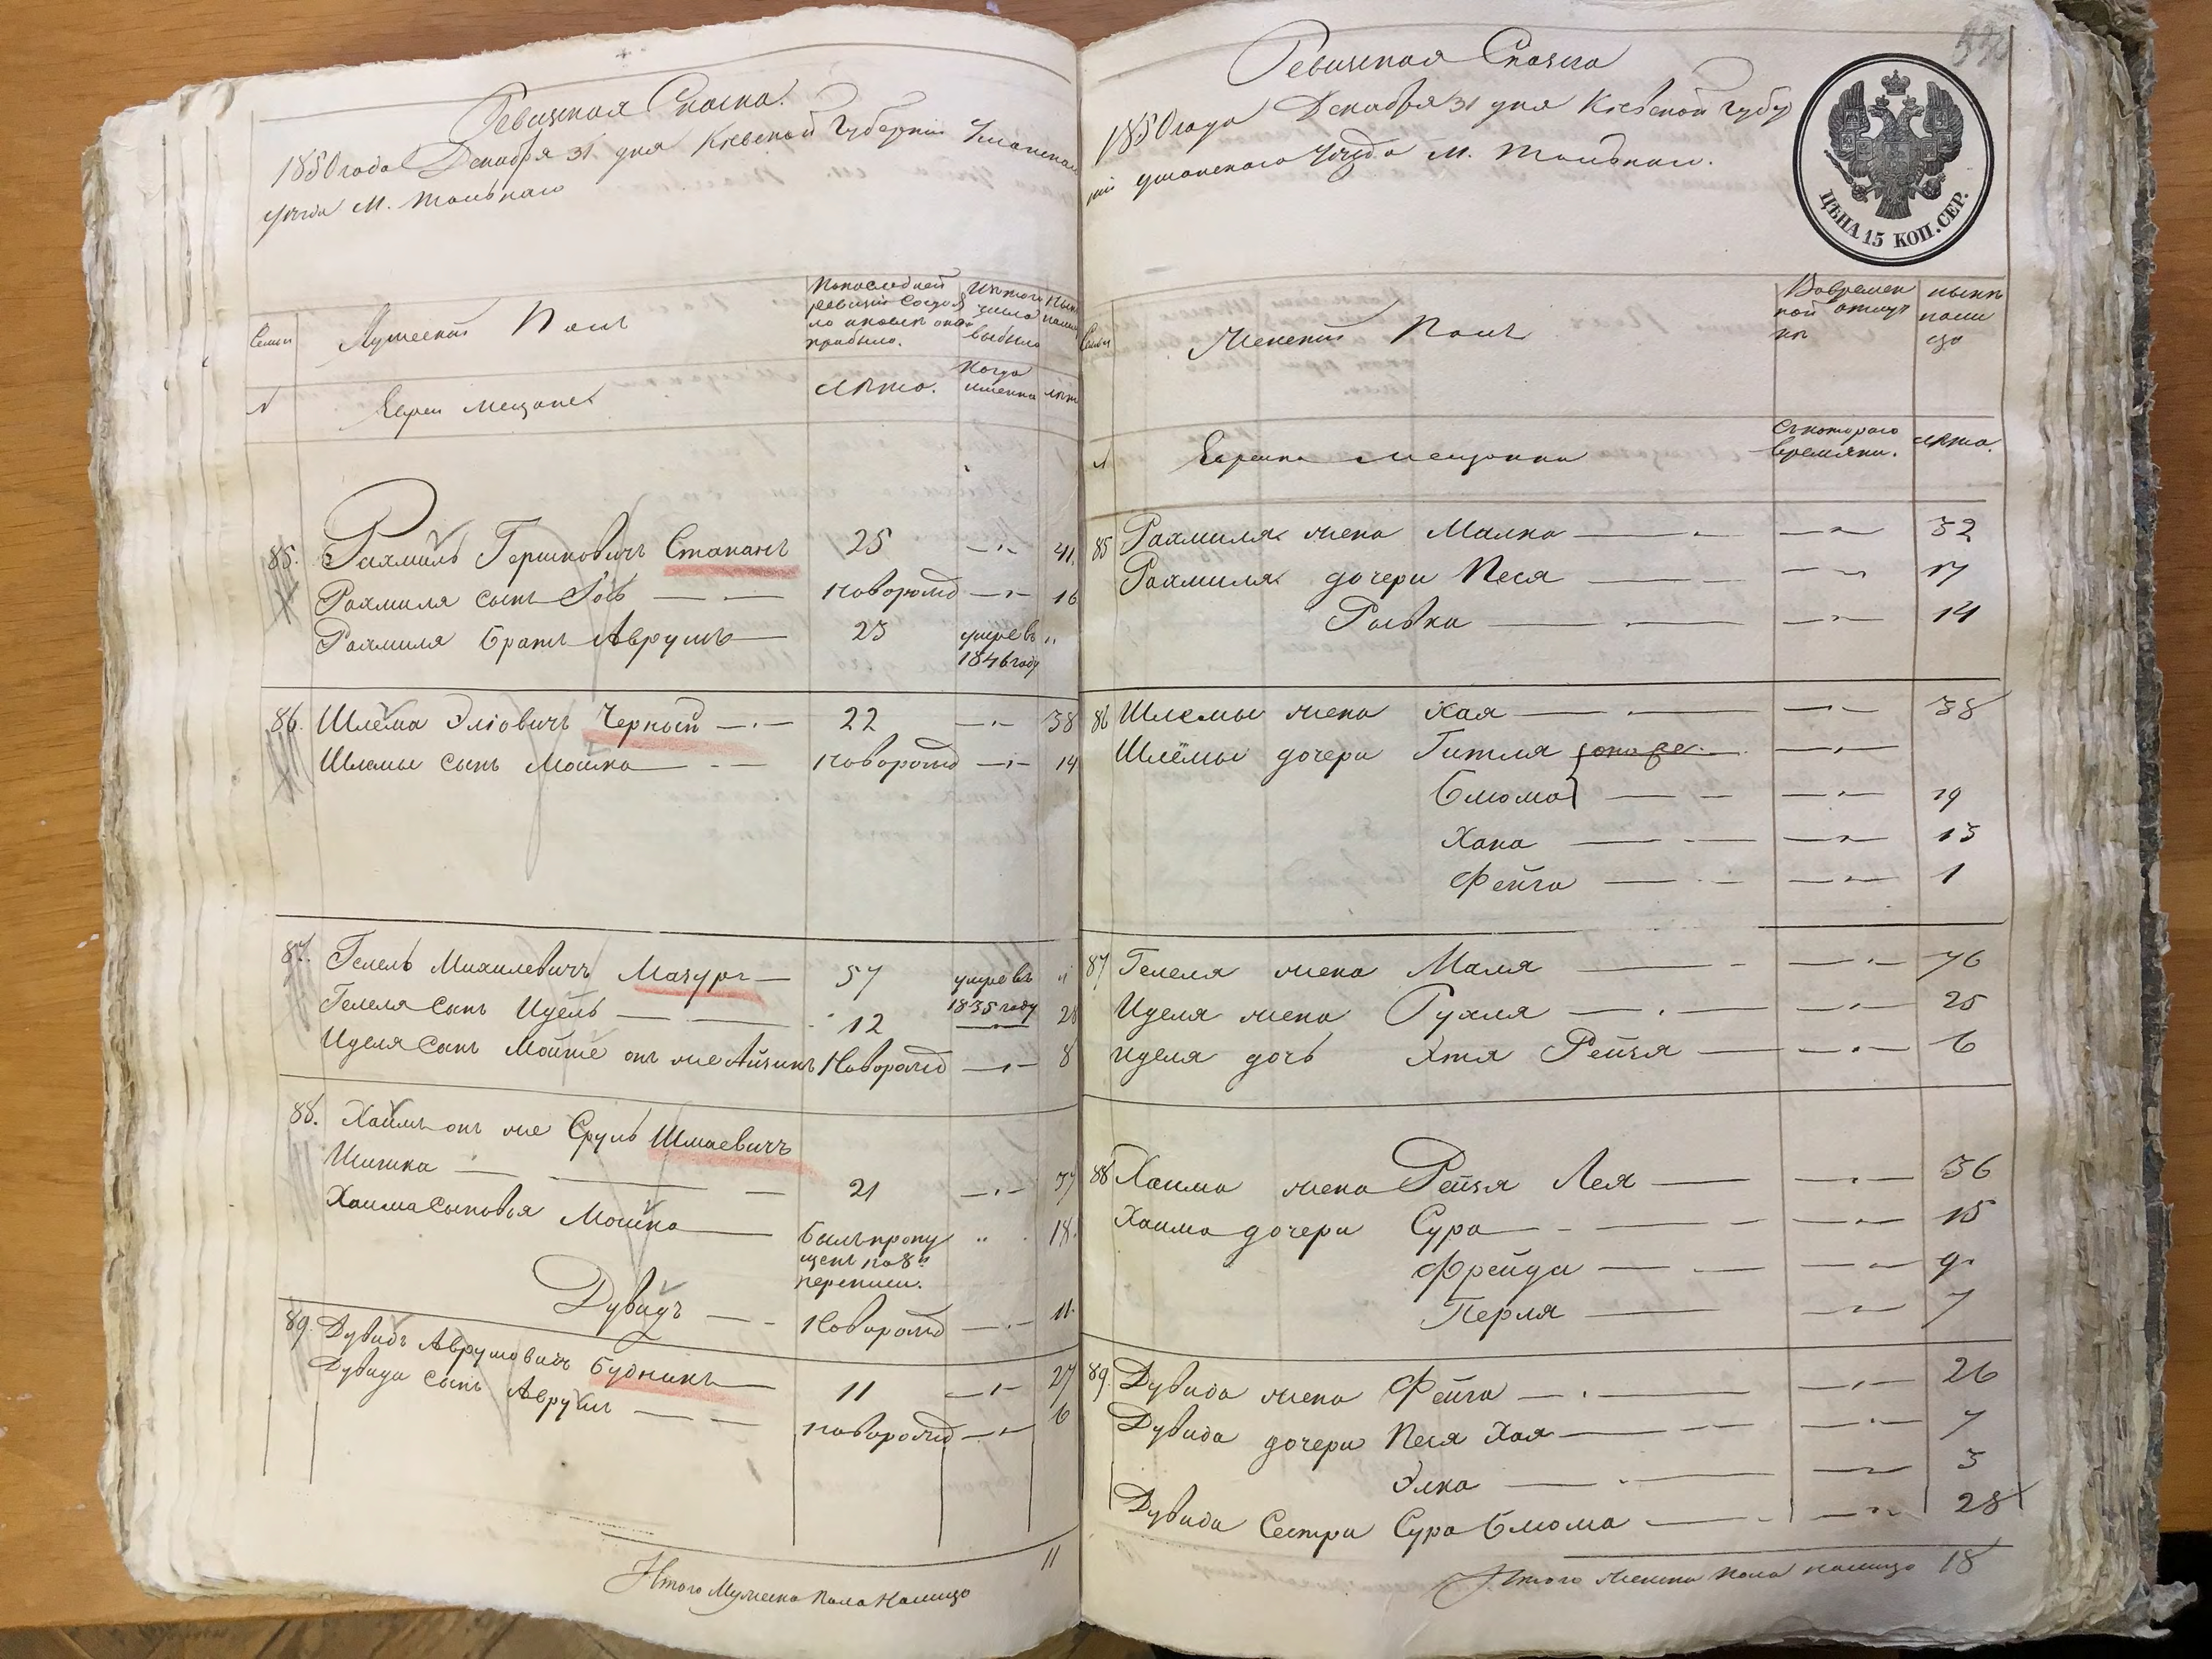 Ревизская Сказка.
1850 года Декабря 31 дня Киевской Губернии Уманскаго
уезда М. Тальнаго
Семьи
Мужеский Полъ
По последней
ревизии состоя
ло и после оной
прибыло.
Изъ того
числа
выбыло
Ныне
налицо
№
Евреи мещане
Лета.
Когда
именно
лета
85. Рахмиль Гершковичъ Стаканъ 25 —"— 41.
Рахмиля сынъ Росъ — — новорожд —"— 16
Рахмиля братъ Аврумъ — 23 умре въ "
1846 году
86. Шлёма Эліовичъ Черный —.— 22 —"— 38
Шлемы сынъ Мошко — новорожд —"— 14
87. Гецель Михилевичъ Мазуръ — 57 умре въ "
1835 году
Гецеля сынъ Идель — — 12 28
Иделя сынъ Мойше онъ же Айзикъ новорожд —"— 8
88. Хаимъ онъ же Сруль Шмаевичъ
Шишка — — — 21 —"— 37
Хаима сыновья Мошко — былъ пропу " 18.
щенъ по 8й
переписи.
Дувидъ — — новорожд —"— 11.
89. Дувидъ Аврумовичъ Будникъ — 11 —"— 27
Дувида сынъ Аврумъ — — новорожд —"— 6
Итого Мужеска пола налицо 11
Ревизская Сказка
1850 года Декабря 31 дня Киевской Губер
ніи Уманскаго Уезда М. Тальнаго.
ЦѢНА 15 КОП. СЕР.
Семьи
Женский Полъ
Во времен
ной отлуч
ке
ныне
нали
цо
№
Еврейки мещанки
Съ котораго
времяни.
лета.
85 Рахмиля жена Малка — —"— 32
Рахмиля дочери Песя — —"— 17
Ривка — —"— 14
86 Шлемы жена Хая — —"— 38
Шлёмы дочери Гитля — —"—
Блюма — —"— 19
Хана — —"— 13
Фейга — —"— 1
87 Гецеля жена Маля — —"— 76
Иделя жена Рухля — —"— 25
Иделя дочь Этя Рейзя — —"— 6
88 Хаима жена Рейзя Лея — —"— 36
Хаима дочери Сура — —"— 15
Фрейда — —"— 9.
Перля — —"— 7
89. Дувида жена Фейга — —"— 26
Дувида дочери Песя Хая — —"— 7
Элка — —"— 3
Дувида Сестра Сура Блюма — —"— 28
Итого женска пола налицо 18